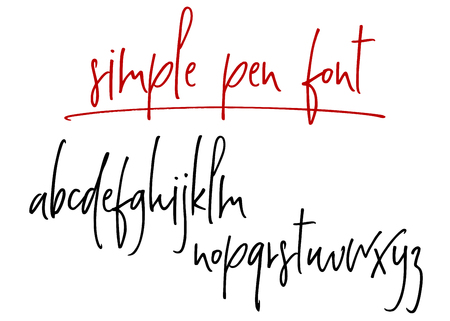 simple pen font
abcdefghijklm
nopqrstuvwxyz